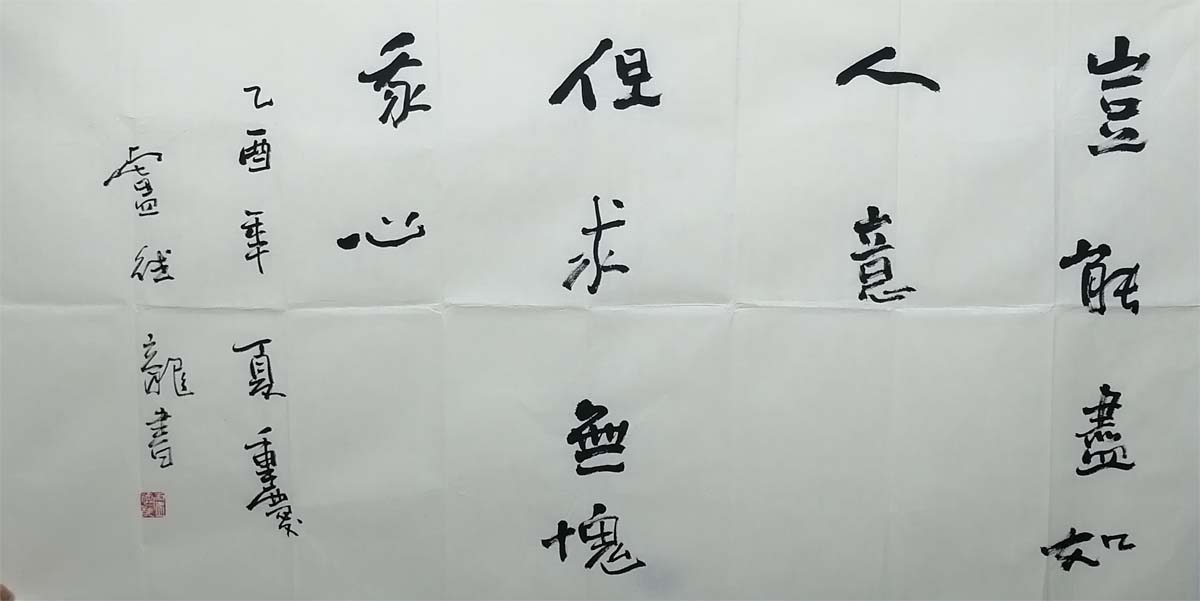 豈能盡如
人意
但求無愧
我心
乙酉年夏重慶
盧德龍書